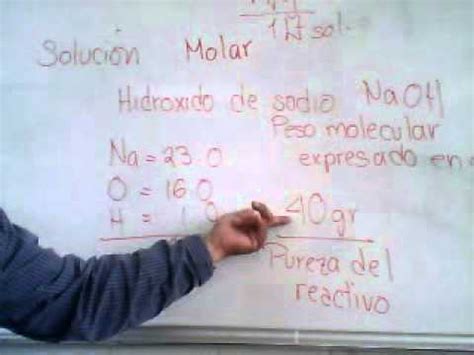 1N sol.
Solución Molar
Hidroxido de sodio NaOH
Peso molecular
Na = 23.0 expresado en
O = 16.0
H = 1.0 40gr
Pureza del
reactivo